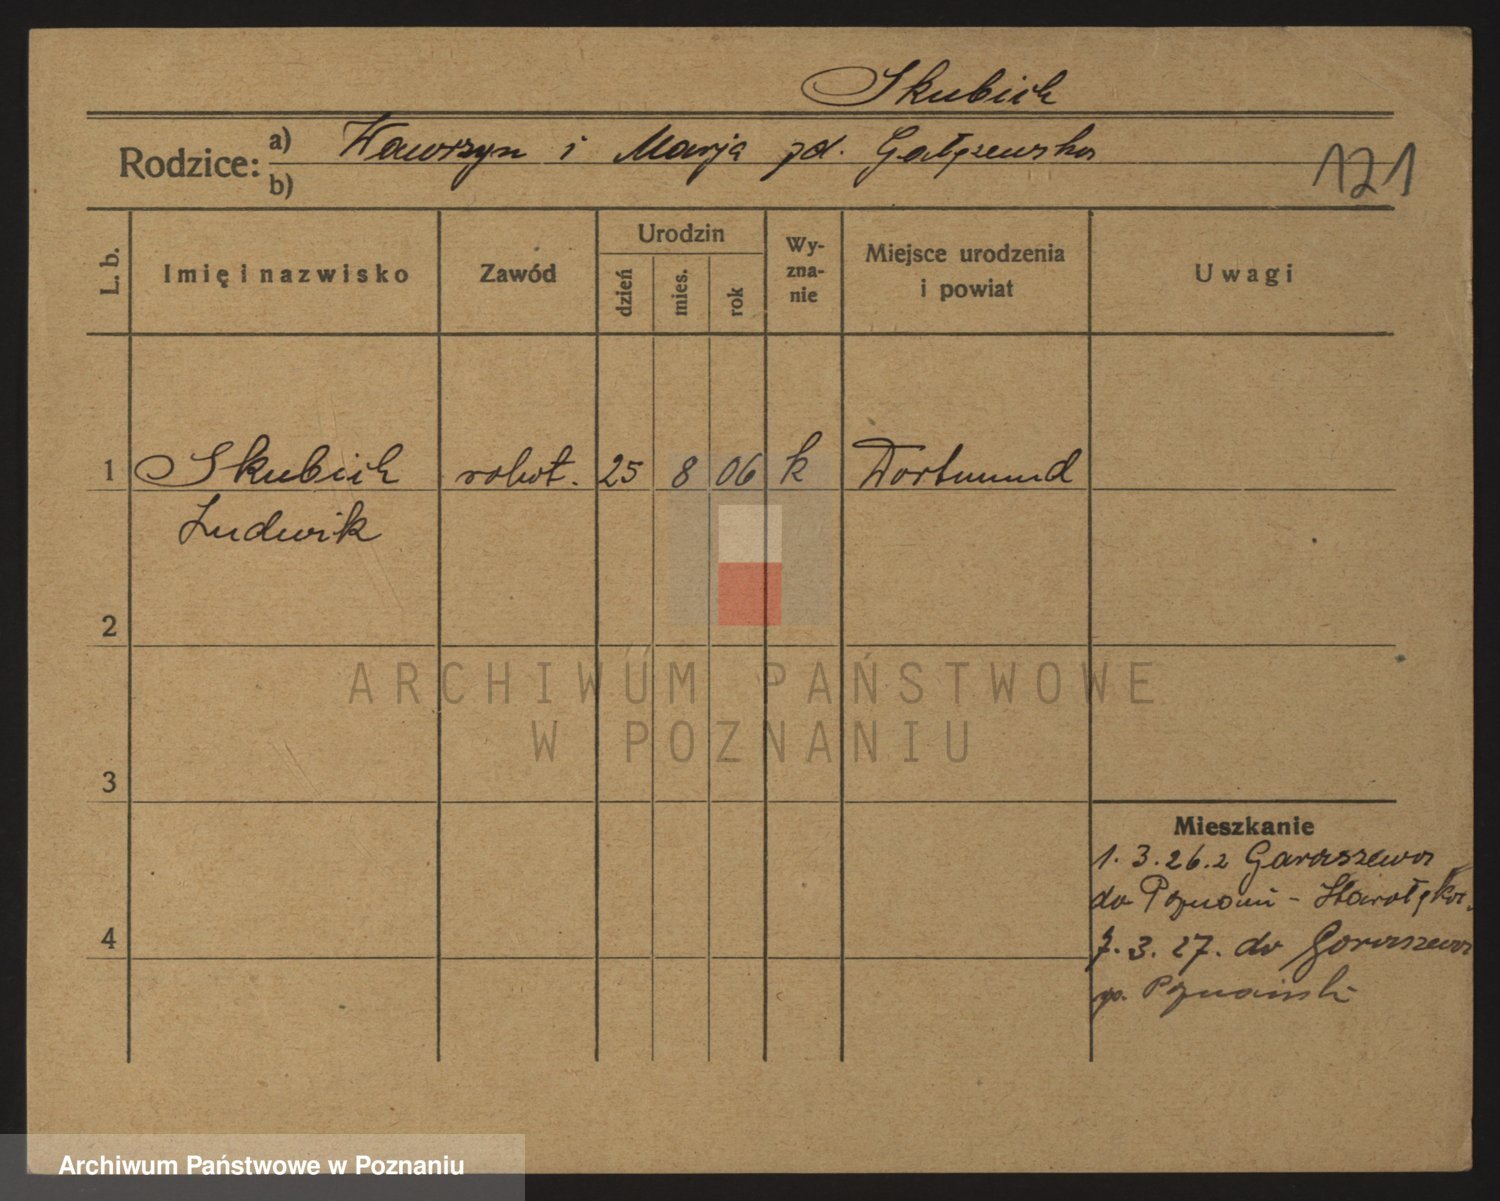 Skubich
Rodzice: a) Wawrzyn i Marja zd. Gałęzewska
b)
121
L. b.
Imię i nazwisko
Zawód
Urodzin
dzień
mies.
rok
Wy-
zna-
nie
Miejsce urodzenia
i powiat
Uwagi
1 Skubich robot. 25 8 06 k Dortmund
Ludwik
2
3
4
Mieszkanie
1.3.26. z Garaszewa
do Poznani - Starołęka.
7.3.27. do Garaszewa
po. Poznański
ARCHIWUM PAŃSTWOWE
W POZNANIU
Archiwum Państwowe w Poznaniu